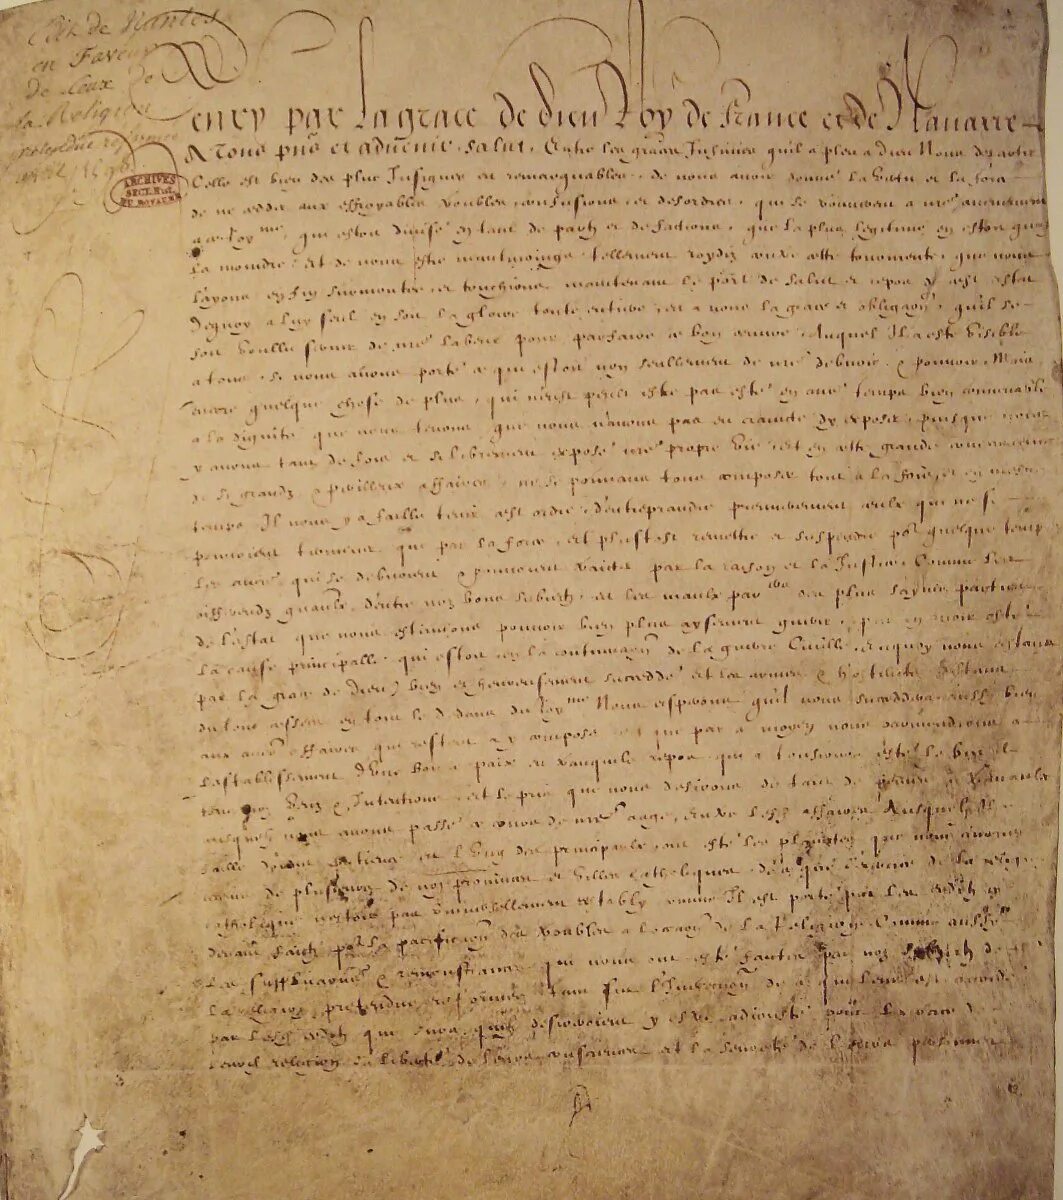 Edit de Nantes
en Faveur
de Ceux de
la Religion
pretendue reformee
ARCHIVES
SECT. HIST.
DU ROYAUME
Henry par la grace de dieu Roy de France et de Navarre
A tous pñs et advenir salut. Entre les graces Infinies qu'il a pleu a Dieu Nous departir
Celle est bien des plus Insignes et remarquables, de nous avoir donné la vertu et la force
de ne ceder aux effroyables troubles, confusions et desordres, qui se trouverent a nre advenement
a ce Roy.me, qui estoit divisé en tant de partz et de factions, que la plus legitime en estoit quasi
la moindre, et de nous estre neantmoings tellement roydiz contre ceste tourmente, que nous
l'ayons enfin surmontee et touchions maintenant le port de salut et repos de cest estat
Dequoy a luy seul en soit la gloire toute entiere, et a nous la grace et obligaõn, qu'il se
soit voullu servir de nre labeur pour parfaire ce bon oeuvre. Auquel Il a esté visible
a tous, si nous avons porté ce qui estoit non seullement de nre debvoir & pouvoir, Mais
encore quelque chose de plus, qui n'eust peult estre pas esté en autre temps bien convenable
a la dignité que nous tenons, que nous n'avons pas eu craincte d'y exposer, puisque nous
y avons tant de fois et si librement exposé nre propre vie. Et en ceste grande concurrence
de si grandz & perilleux affaires, ne se pouvans tous composer tout a la fois, et en mesme
temps, Il nous y a faillu tenir cest ordre, d'entreprendre premierement ceulx qui ne se
pouvoient terminer que par la force, et plustost remettre et suspendre pour quelque temps
les autres qui se debvoient & pouvoient traicter par la raison et la Justice. Comme les
differendz generaulx d'entre noz bons subiectz, et les maulx par.ers des plus saynes parties
de l'estat que nous estimions pouvoir bien plus aysement guerir, apres en avoir osté
la cause principalle, qui estoit en la continuaõn de la guerre Civille, Enquoy nous estant
par la grace de Dieu bien et heureusement succeddé et les armes & hostilitez estans
du tout cessees en tout le dedans du Roy.me Nous esperons qu'il nous succeddera aussy bien
aux autres affaires qui restent a y composer, et que par ce moyen nous parviendrons a
l'establissement d'une bonne paix et tranquille repos, qui a tousiours esté le but de
tous noz vœuz & Intentions, et le prix que nous desirons de tant de peines & travaulx
ausquelz nous avons passé ce cours de nre aage. Entre lesd. affaires Ausquelz Il a
faillu donner patience et l'un des principaulx, ont esté les plainctes que nous avons
receues de plusieurs de noz provinces et villes catholiques, de ce que l'exercice de la religion
catholique n'estoit pas universellement restably comme Il est porté par les edictz cy
devant faictz pour la pacificaõn des troubles a l'occaõn de la Religion. Comme aussy
Les supplicaõns & remonstrances qui nous ont esté faictes par noz subiectz de la
Relligion pretendue reformee, tant sur l'Inexecuõn de ce qui leur est accordé
par lesd. edictz, que sur ce qu'ilz desireroient y estre adiousté pour l'exercice de
leurd. religion, la liberté de leurs consciences et la seureté de leurs personnes